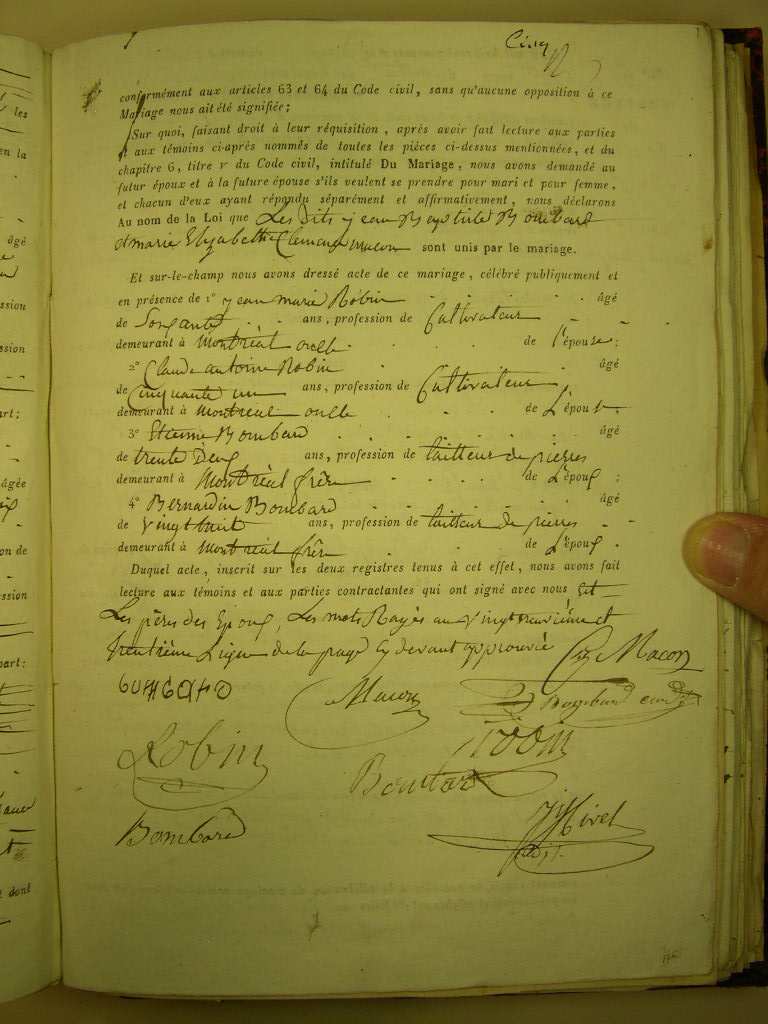 Cinq
conformément aux articles 63 et 64 du Code civil, sans qu'aucune opposition à ce
Mariage nous ait été signifiée;
Sur quoi, faisant droit à leur réquisition, après avoir fait lecture aux parties
et aux témoins ci-après nommés de toutes les pièces ci-dessus mentionnées, et du
chapitre 6, titre v du Code civil, intitulé Du Mariage, nous avons demandé au
futur époux et à la future épouse s'ils veulent se prendre pour mari et pour femme,
et chacun d'eux ayant répondu séparément et affirmativement, nous déclarons
Au nom de la Loi que Les Dits jean Baptiste Bombard
et marie Elizabeth Clemence macon sont unis par le mariage.
Et sur-le-champ nous avons dressé acte de ce mariage, célébré publiquement et
en présence de 1° jean marie Robin âgé
de Soixante ans, profession de Cultivateur
demeurant à Montréal oncle de l'épouse;
2° Claude antoine Robin âgé
de Cinquante un ans, profession de Cultivateur
demeurant à Montréal oncle de L'épouse
3° Etienne Bombard âgé
de trente Deux ans, profession de tailleur de pierres
demeurant à Montréal frère de L'époux;
4° Bernardin Bombard âgé
de vingt huit ans, profession de tailleur de pierres
demeurant à Montréal frère de L'époux
Duquel acte, inscrit sur les deux registres tenus à cet effet, nous avons fait
lecture aux témoins et aux parties contractantes qui ont signé avec nous et
Les pères des Epoux, Les mots Rayés au vingt neuvième et
trentième Ligne de la page Cy devant approuvé Macon
BOMBARD Macon Bombard
Robin Robin
Bombard
Bombard